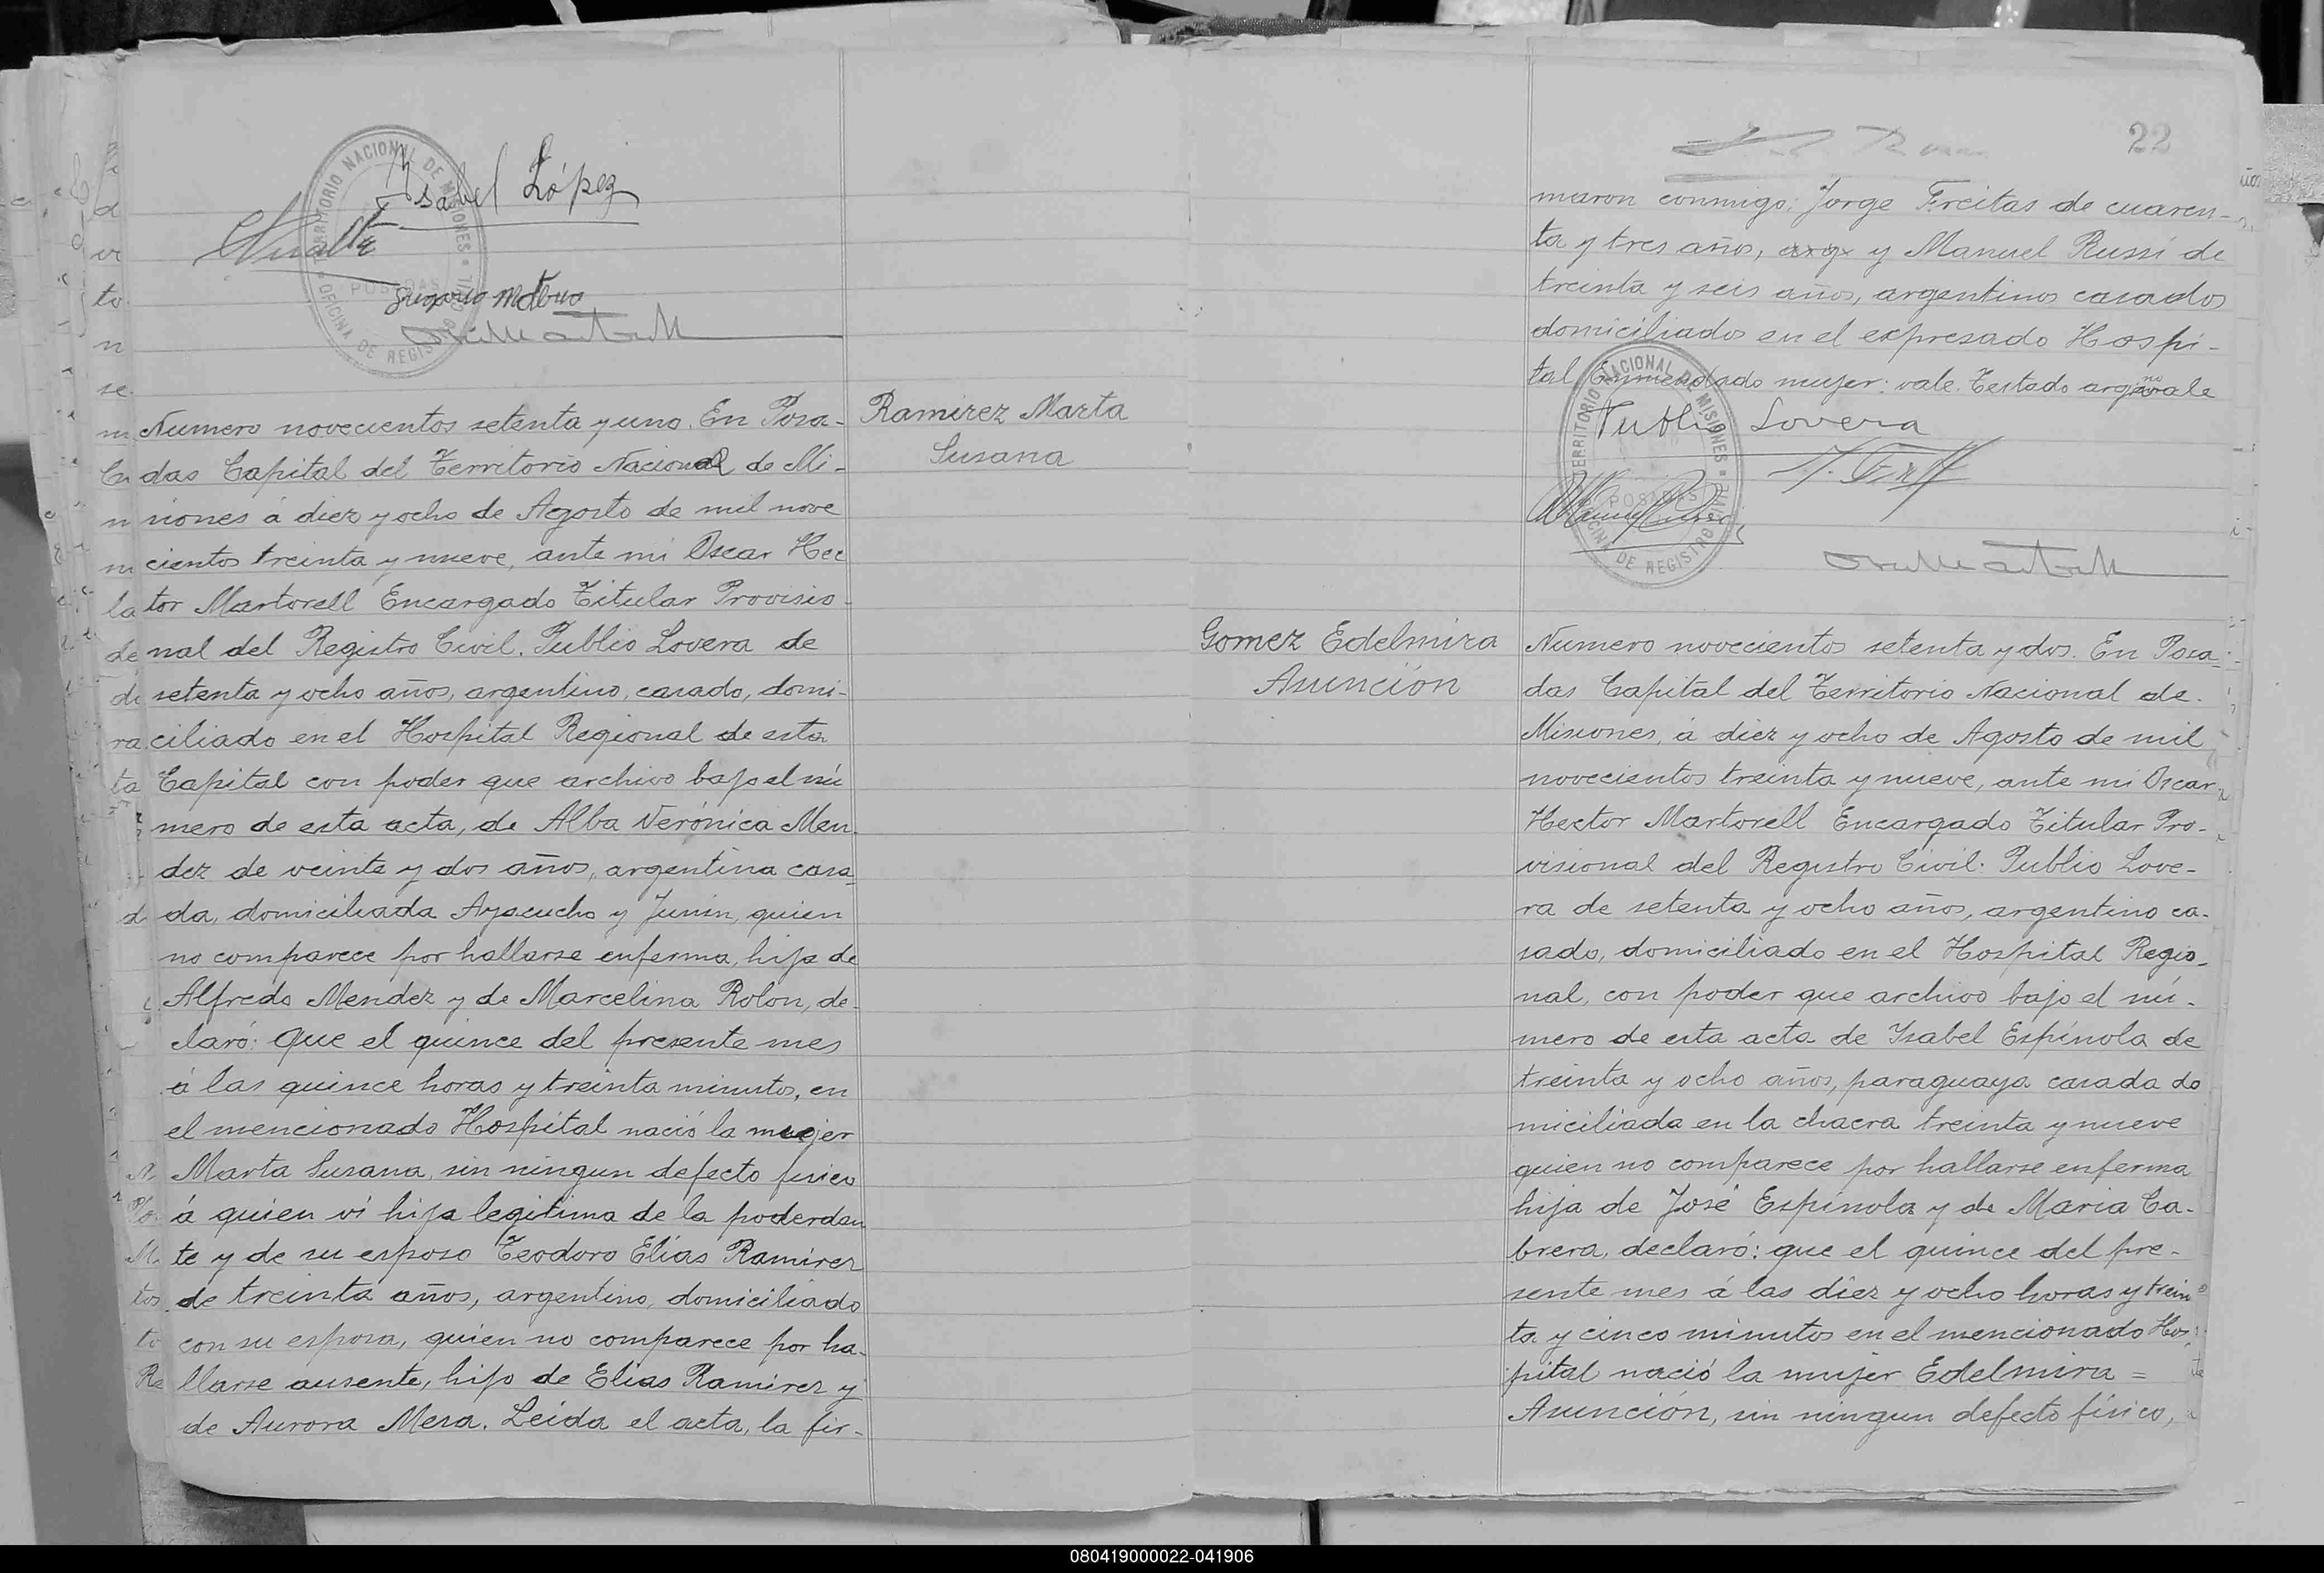 Isabel López
TERRITORIO NACIONAL DE MISIONES
POSADAS
OFICINA DE REGISTRO CIVIL
Ramirez Marta
Susana
Numero novecientos setenta y uno. En Posa-
das Capital del Territorio Nacional de Mi-
siones á diez y ocho de Agosto de mil nove
cientos treinta y nueve, ante mi Oscar Hec
tor Martorell Encargado Titular Provisio-
nal del Registro Civil. Publio Lovera de
setenta y ocho años, argentino, casado, domi-
ciliado en el Hospital Regional de esta
Capital con poder que archivo bajo el nú
mero de esta acta, de Alba Verónica Men-
dez de veinte y dos años, argentina casa-
da, domiciliada Ayacucho y Junin, quien
no comparece por hallarse enferma, hija de
Alfredo Mendez y de Marcelina Rolon, de-
claró: Que el quince del presente mes
á las quince horas y treinta minutos, en
el mencionado Hospital nació la mujer
Marta Susana, sin ningun defecto fisico
á quien vi hija legitima de la poderdan
te y de su esposo Teodoro Elias Ramirez
de treinta años, argentino, domiciliado
con su esposa, quien no comparece por ha-
llarse ausente, hijo de Elias Ramirez y
de Aurora Mesa. Leida el acta, la fir-
22
maron conmigo: Jorge Freitas de cuaren-
ta y tres años, arg y Manuel Russi de
treinta y seis años, argentinos casados
domiciliados en el expresado Hospi-
tal Enmendado mujer: vale. Testado arg: no vale
Publio Lovera
TERRITORIO NACIONAL DE MISIONES
POSADAS
OFICINA DE REGISTRO CIVIL
Gomez Edelmira
Asunción
Numero novecientos setenta y dos. En Posa-
das Capital del Territorio Nacional de
Misiones, á diez y ocho de Agosto de mil
novecientos treinta y nueve, ante mi Oscar
Hector Martorell Encargado Titular Pro-
visional del Registro Civil: Publio Love-
ra de setenta y ocho años, argentino ca-
sado, domiciliado en el Hospital Regio-
nal, con poder que archivo bajo el nú-
mero de esta acta de Isabel Espínola de
treinta y ocho años, paraguaya casada do
miciliada en la chacra treinta y nueve
quien no comparece por hallarse enferma
hija de José Espínola y de Maria Ca-
brera, declaró: que el quince del pre-
sente mes á las diez y ocho horas y trein
ta y cinco minutos en el mencionado Hos-
pital nació la mujer Edelmira =
Asunción, sin ningun defecto fisico,
080419000022-041906